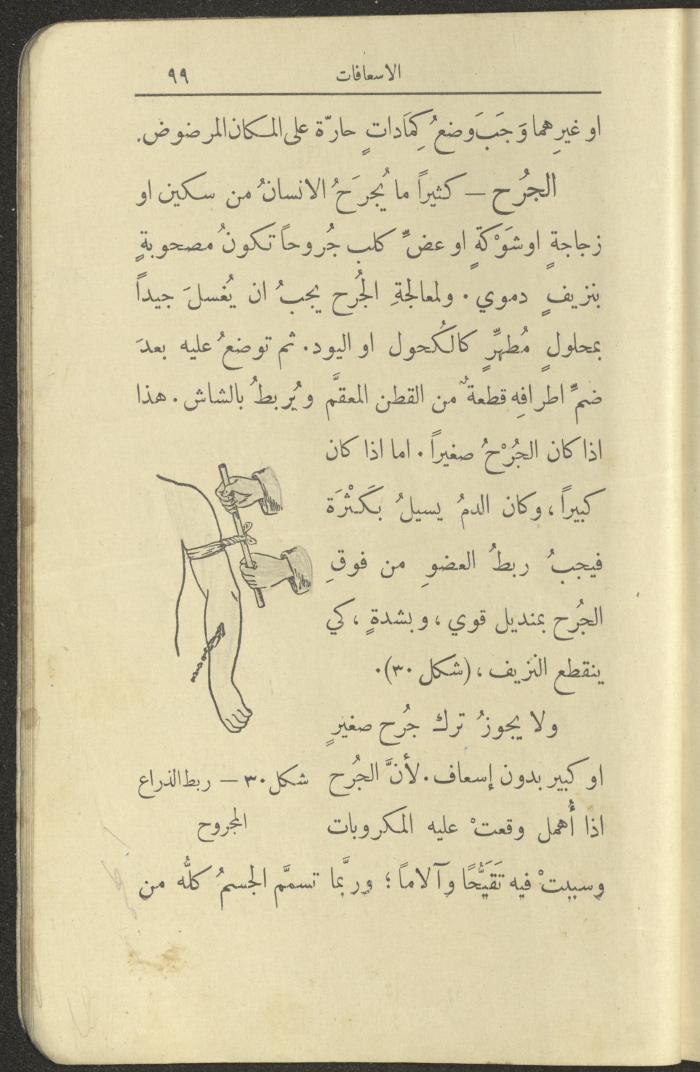 الاسعافات ٩٩
او غيرِهما وَجَبَ وضعُ كِمَاداتٍ حارّة على المكان المرضوض.
الجُرح – كثيراً ما يُجرَحُ الانسانُ من سكين او
زجاجةٍ او شَوْكةٍ او عضِّ كلب جُروحاً تكونُ مصحوبةٍ
بنزيفٍ دموي. ولمعالجةِ الجُرح يجبُ ان يُغسلَ جيداً
بمحلولٍ مُطهِّرٍ كالكُحول او اليود. ثم توضعُ عليه بعدَ
ضمِّ اطرافِه قطعةٌ من القطن المعقَّم ويُربطُ بالشاش. هذا
اذا كان الجُرْحُ صغيراً. اما اذا كان
كبيراً، وكان الدمُ يسيلُ بكَثْرَة
فيجبُ ربطُ العضوِ من فوقِ
الجُرح بمنديل قوي، وبشدةٍ، كي
ينقطع النزيف، (شكل ٣٠).
ولا يجوزُ ترك جُرح صغيرٍ
او كبير بدون إسعاف. لأنَّ الجُرح
اذا أُهمل وقعتْ عليه المكروبات
وسببتْ فيه تَقَيُّحًا وآلاماً؛ وربَّما تسمَّم الجسمُ كلُّه من
شكل ٣٠ – ربط الذراع
المجروح